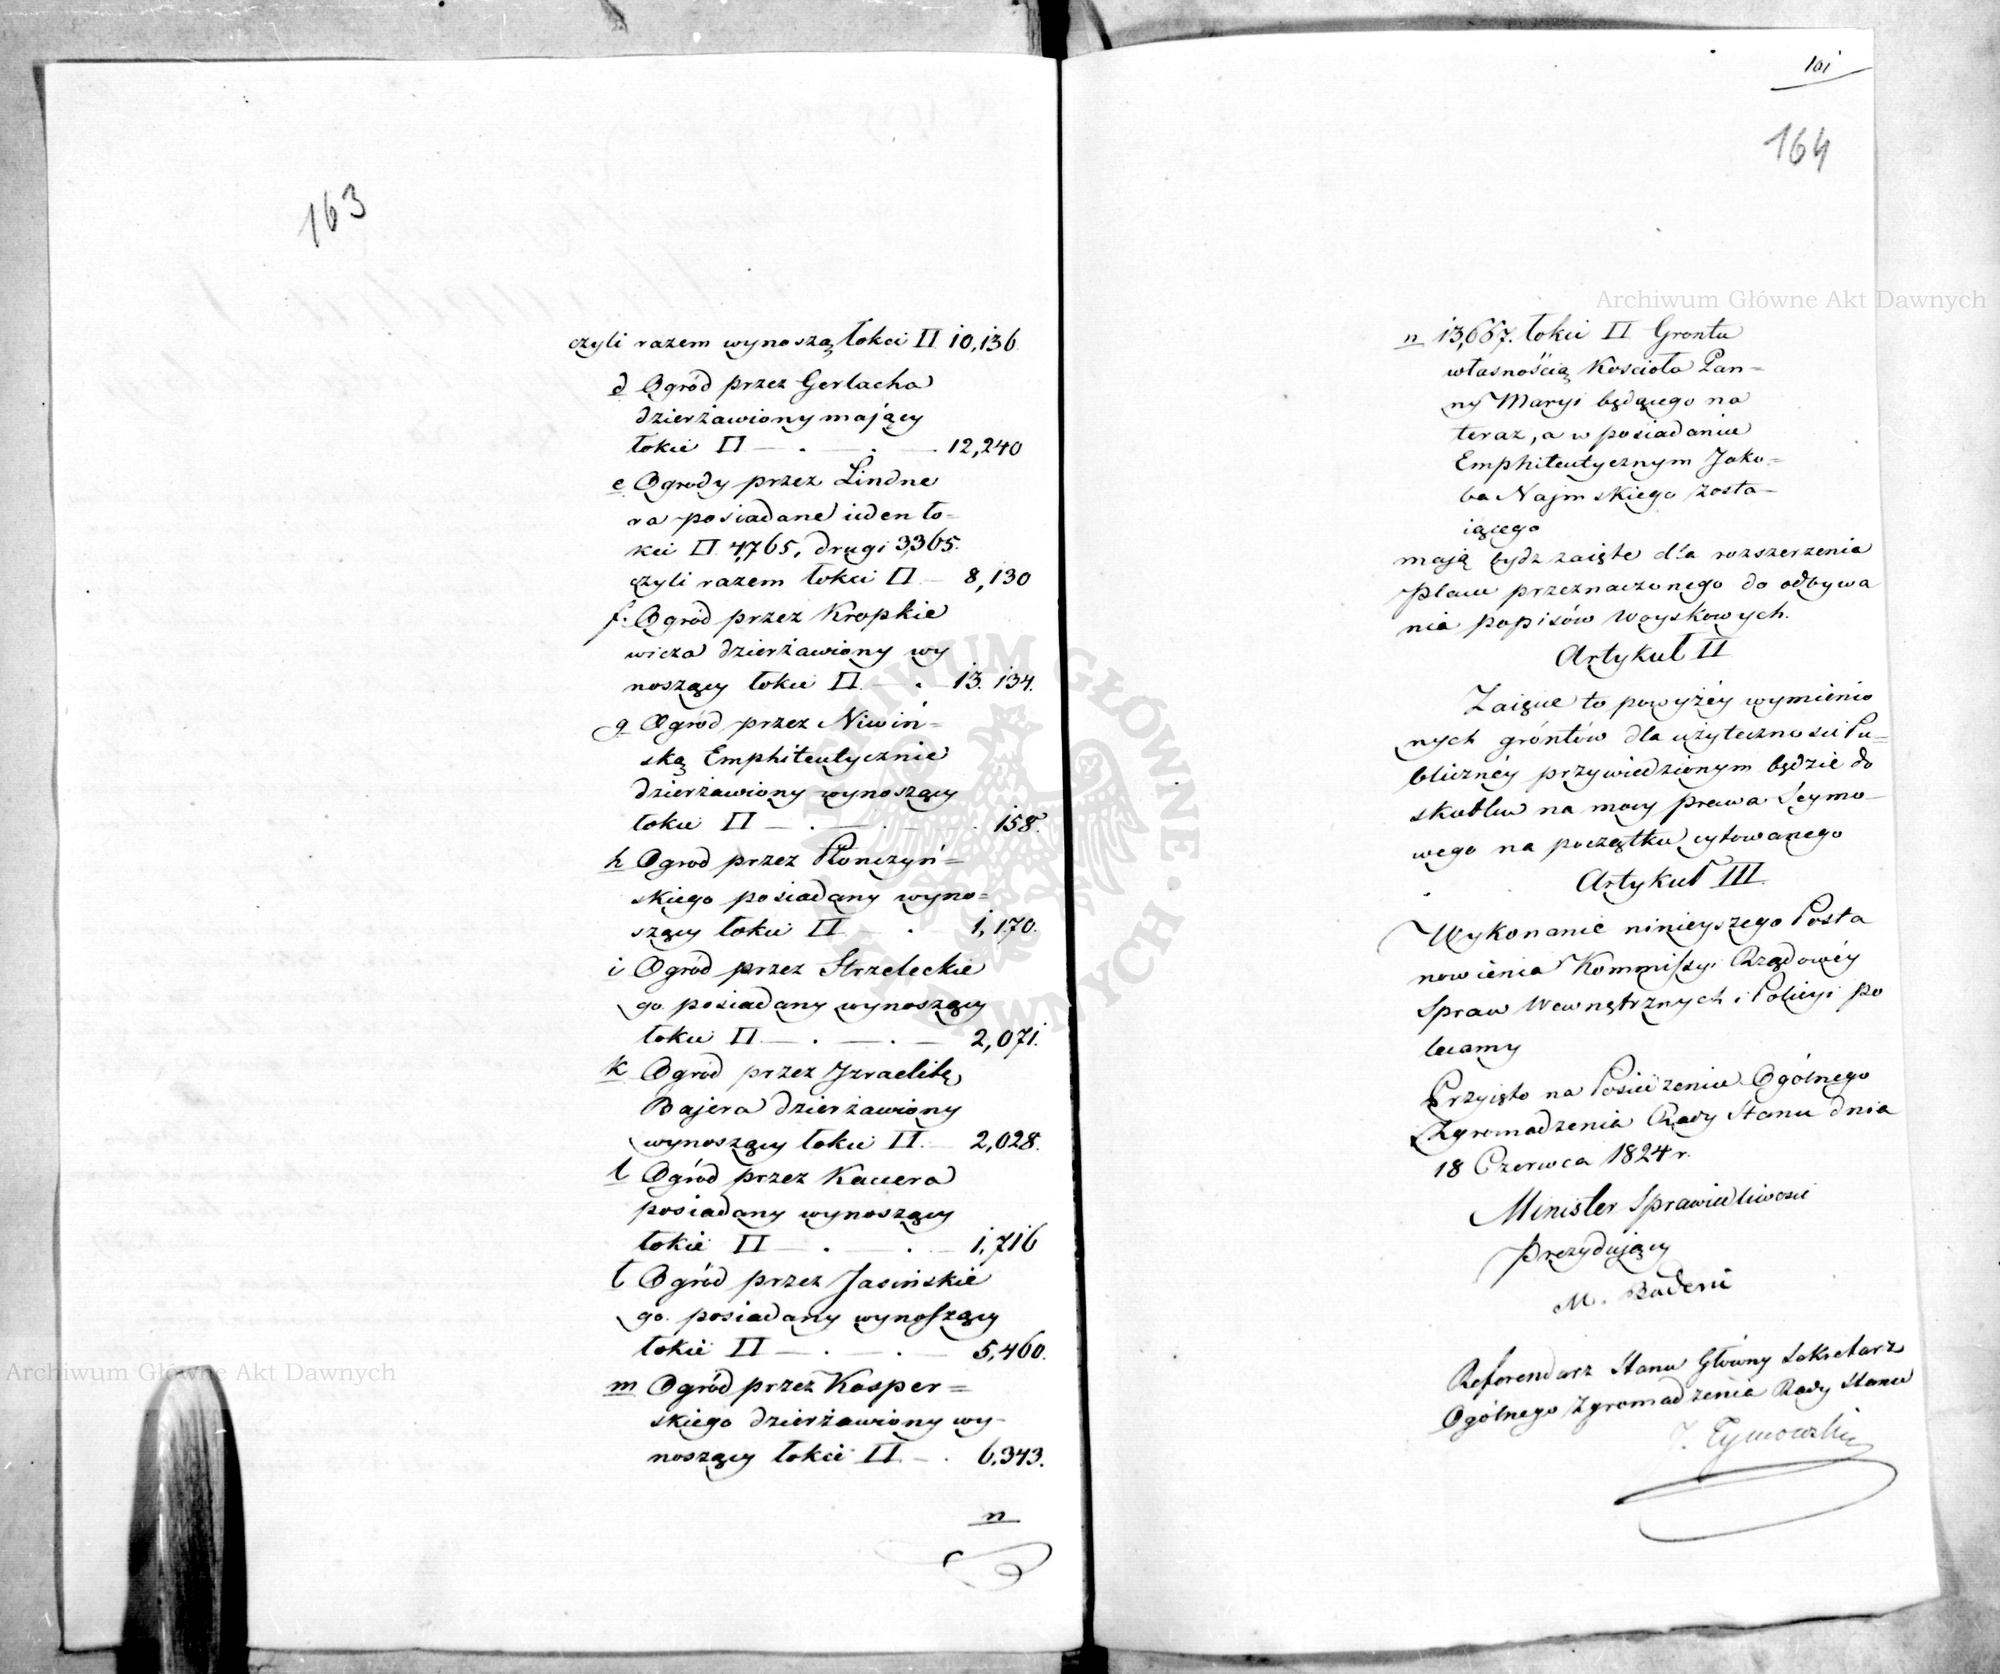 163
czyli razem wynoszą łokci □ 10,136.
d Ogród przez Gerlacha
dzierżawiony mający
łokci □ — . — . — 12,240
e Ogrody przez Lindne
ra posiadane ieden ło=
kci □ 4,765, drugi 3,365.
czyli razem łokci □ — 8,130
f. Ogród przez Kropkie
wicza dzierżawiony wy
noszący łokci □ — . — 13.134.
g Ogród przez Niwiń=
ską Emphiteutycznie
dzierżawiony wynoszący
łokci □ — . — . 158.
h Ogrod przez Płonczyń=
skiego posiadany wyno=
szący łokci □ — . — 1,170.
i Ogród przez Strzeleckie
go posiadany wynoszący
łokci □ — . — . — 2,071.
k Ogród przez Izraelitę
Bajera dzierżawiony
wynoszący łokci □. — 2,028.
l Ogród przez Kauera
posiadany wynoszący
łokci □ — . — . — 1,716
ł Ogród przez Jasińskie
go. posiadany wynoszący
łokci □ — . — . — 5,460.
m Ogród przez Kasper=
skiego dzierżawiony wy-
noszący łokci □ — . 6,343.
n
101
164
n 13,667. łokci □ Grontu
własnością Kościoła Pan=
ny Maryi będącego na
teraz, a w posiadaniu
Emphiteutycznym Jaku=
ba Najmskiego zosta—
iącego
mają bydz zaięte dla rozszerzenia
Placu przeznaczonego do odbywa
nia popisów Woyskowych.
Artykuł II
Zaięcie to powyżéy wymienio
nych gróntów dla użyteczności Pu=
bliczney przywiedzionym będzie do
skutku na mocy prawa Seymo—
wego na początku cytowanego
Artykuł III
Wykonanie ninieyszego Posta
nowienia Kommissyi Rządowéy
Spraw Wewnętrznych i Policyi po
lecamy
Przyięto na Posiedzeniu Ogólnego
Zgromadzenia Rady Stanu dnia
18 Czerwca 1824 r.
Minister Sprawiedliwości
Prezydujący
M. Badeni
Referendarz Stanu Główny Sekretarz
Ogólnego Zgromadzenia Rady Stanu
J. Tymowski
Archiwum Główne Akt Dawnych
Archiwum Główne Akt Dawnych
ARCHIWUM GŁÓWNE AKT DAWNYCH